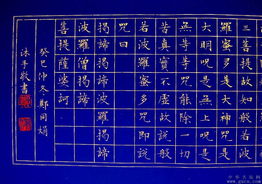 三菩提故知般若波
羅蜜多是大神呪是
大明呪是無上呪是
無等等呪能除一切
苦真實不虛故說般
若波羅蜜多呪即說
呪曰
揭諦揭諦波羅揭諦
波羅僧揭諦
菩提薩婆訶
癸巳仲冬鄭同娟
沐手敬書